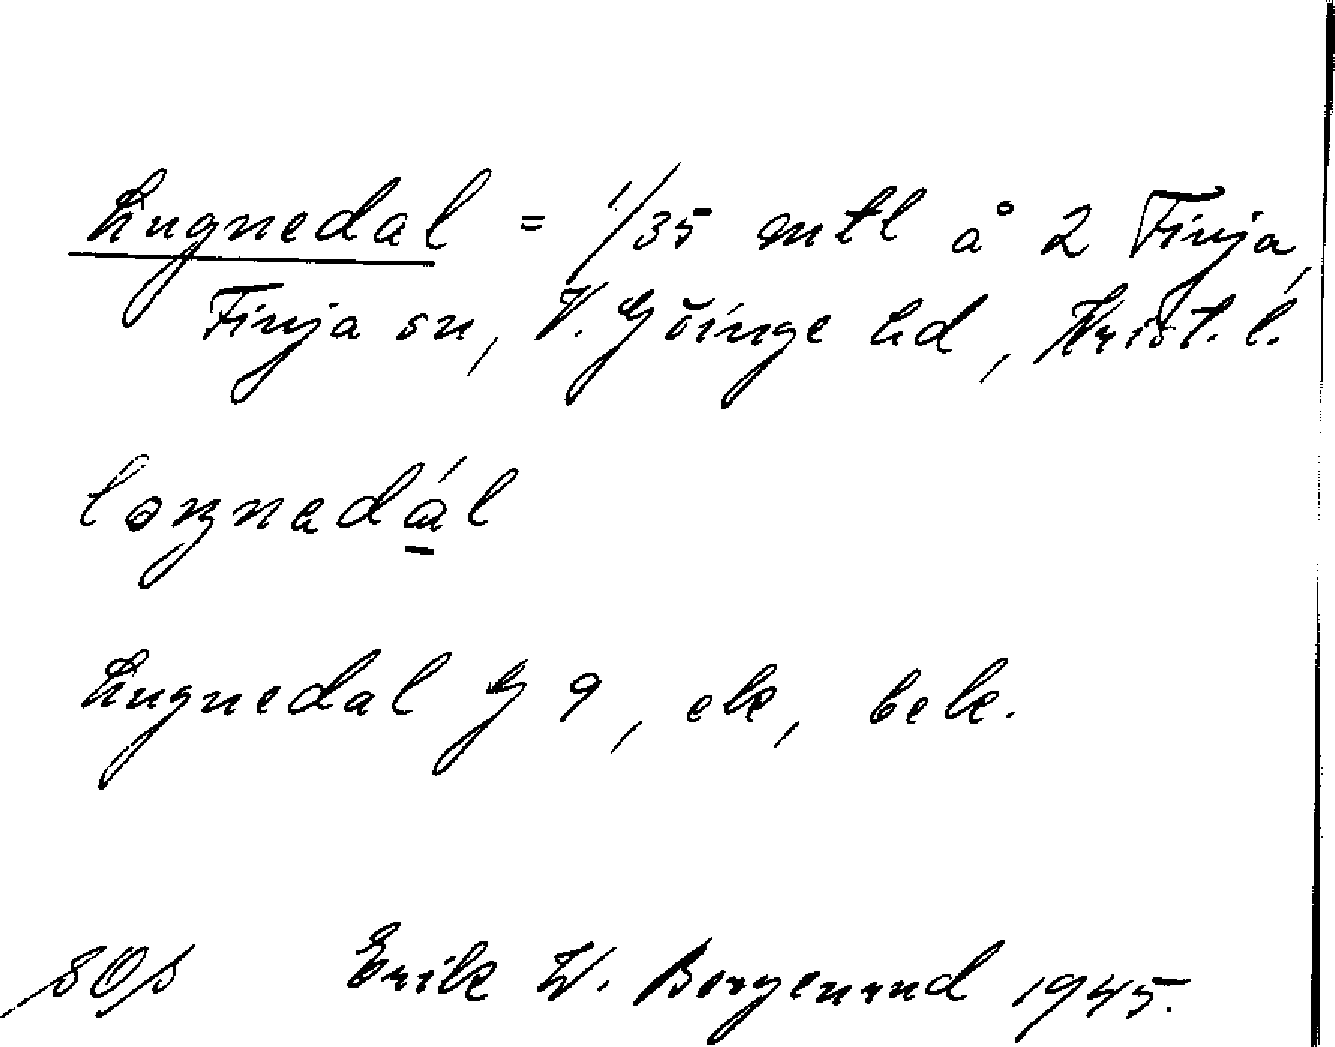 Lugnedal = 1/35 mtl å 2 Finja,
Finja sn, V. Göinge hd, Krist. l.
Lugnedal G 9, ek, bek.
Erik W. Borgenrud 1945.